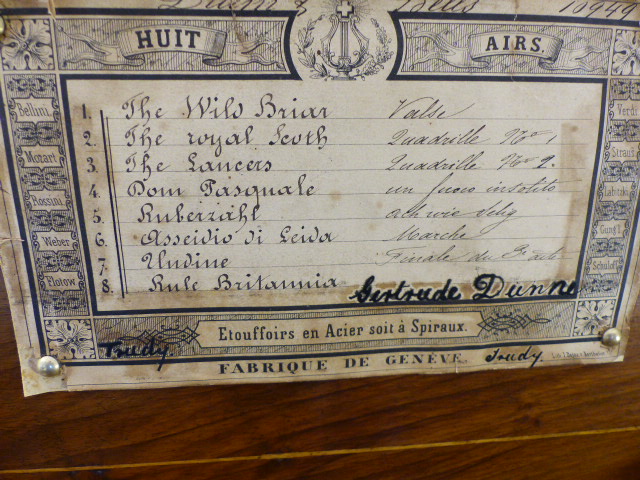 Drum & Bells 16949
HUIT AIRS.
Bellini
Mozart
Rossini
Weber
Flotow
1. The Wild Briar Valse
2. The royal Scoth Quadrille No 1
3. The Lancers Quadrille No 2.
4. Dom Pasquale un fuoco insolito
5. Ruberzähl ach wie selig
6. Asseidio di Leida Marche
7. Undine Finale du 3e act
8. Rule Britannia
Gertrude Dunne
Verdi
Straus
Labitzki
Gung'l
Schulof
Etouffoirs en Acier soit à Spiraux.
Trudy
FABRIQUE DE GENÈVE.
Trudy